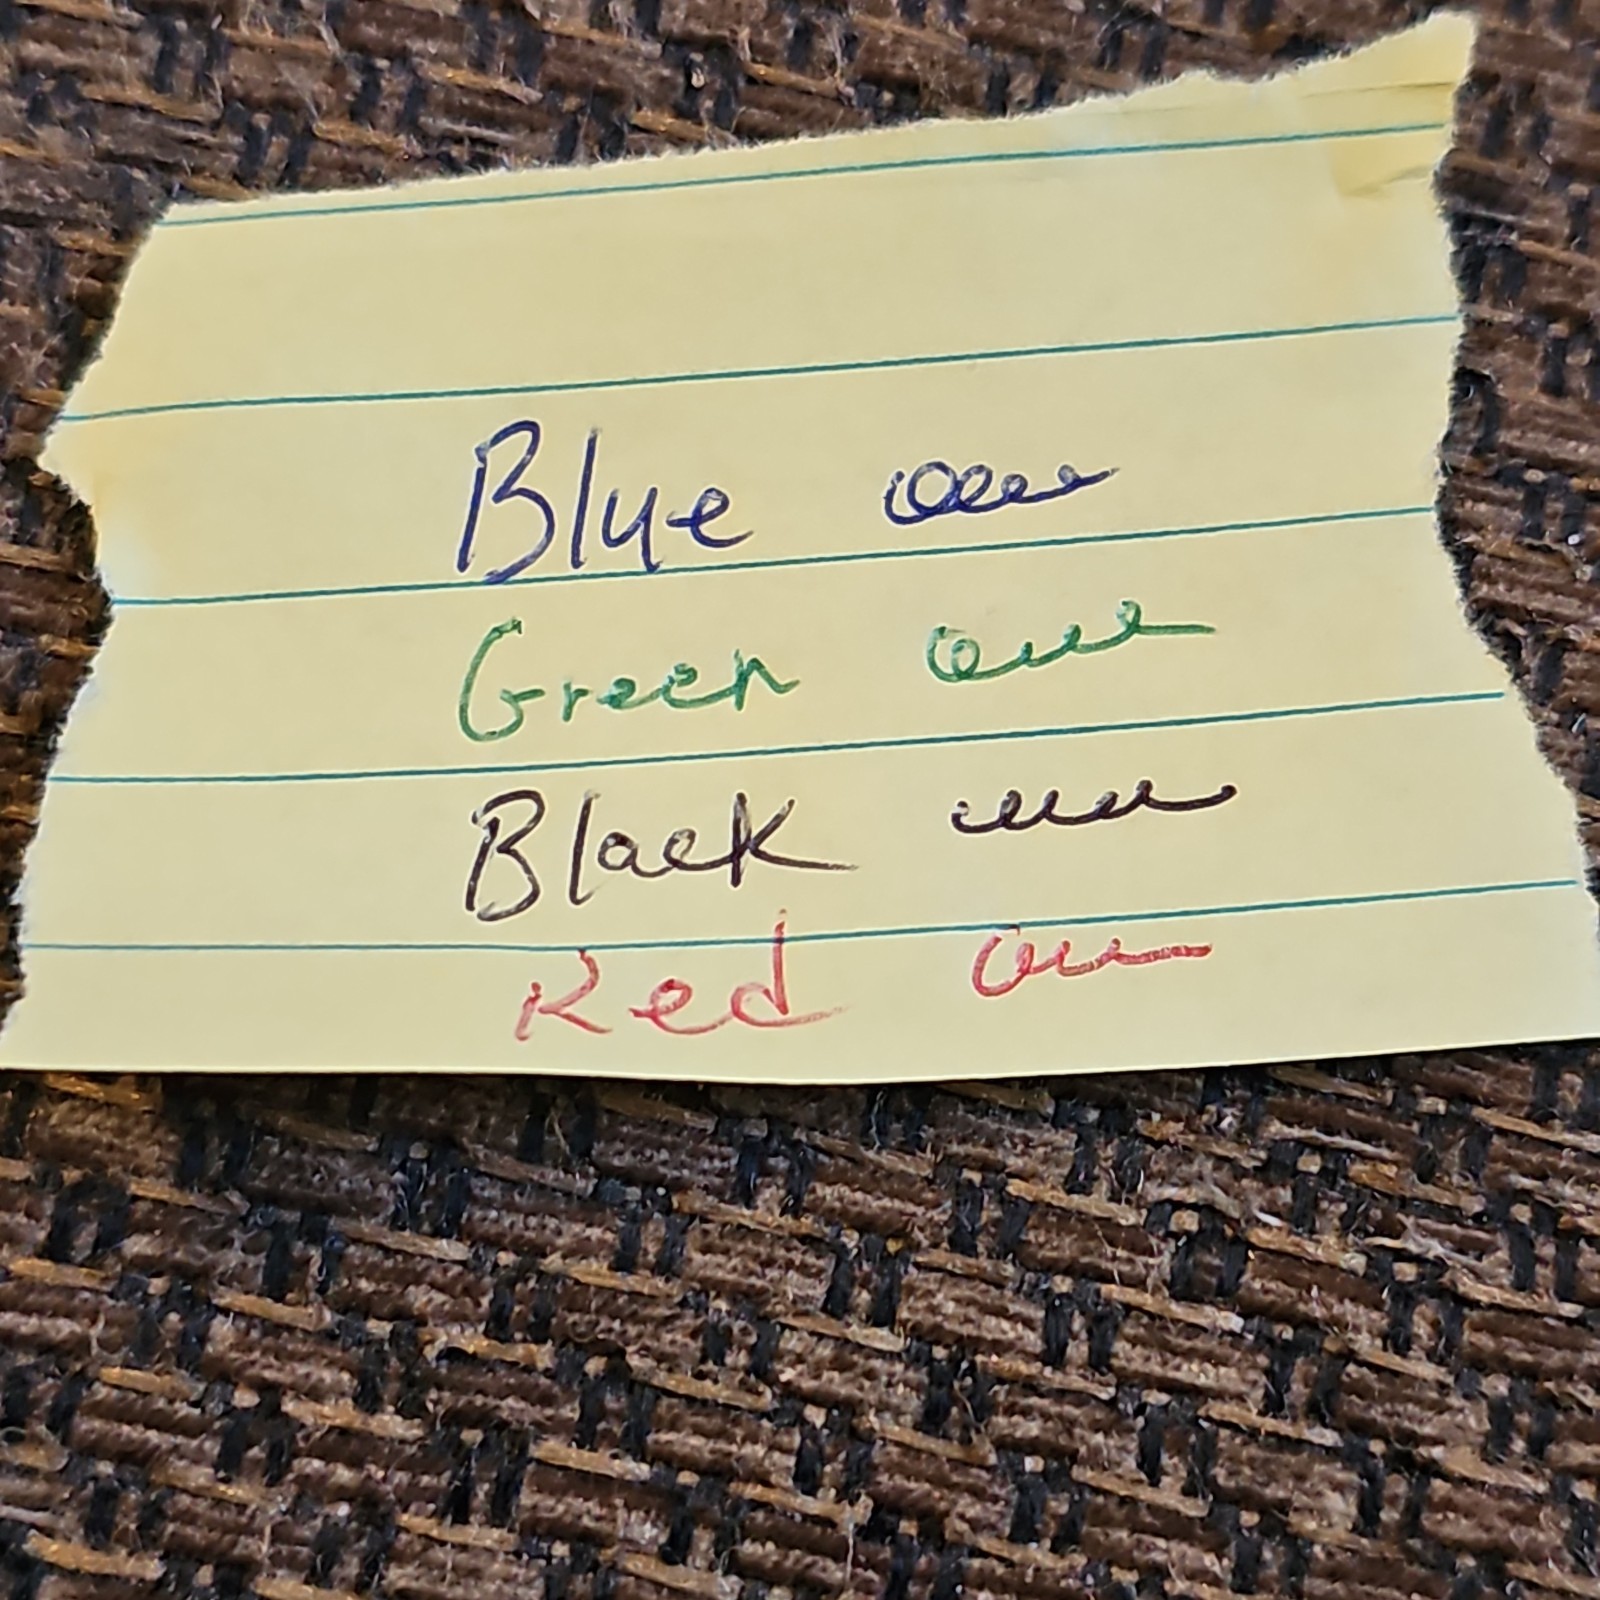 Blue
Green
Black
Red